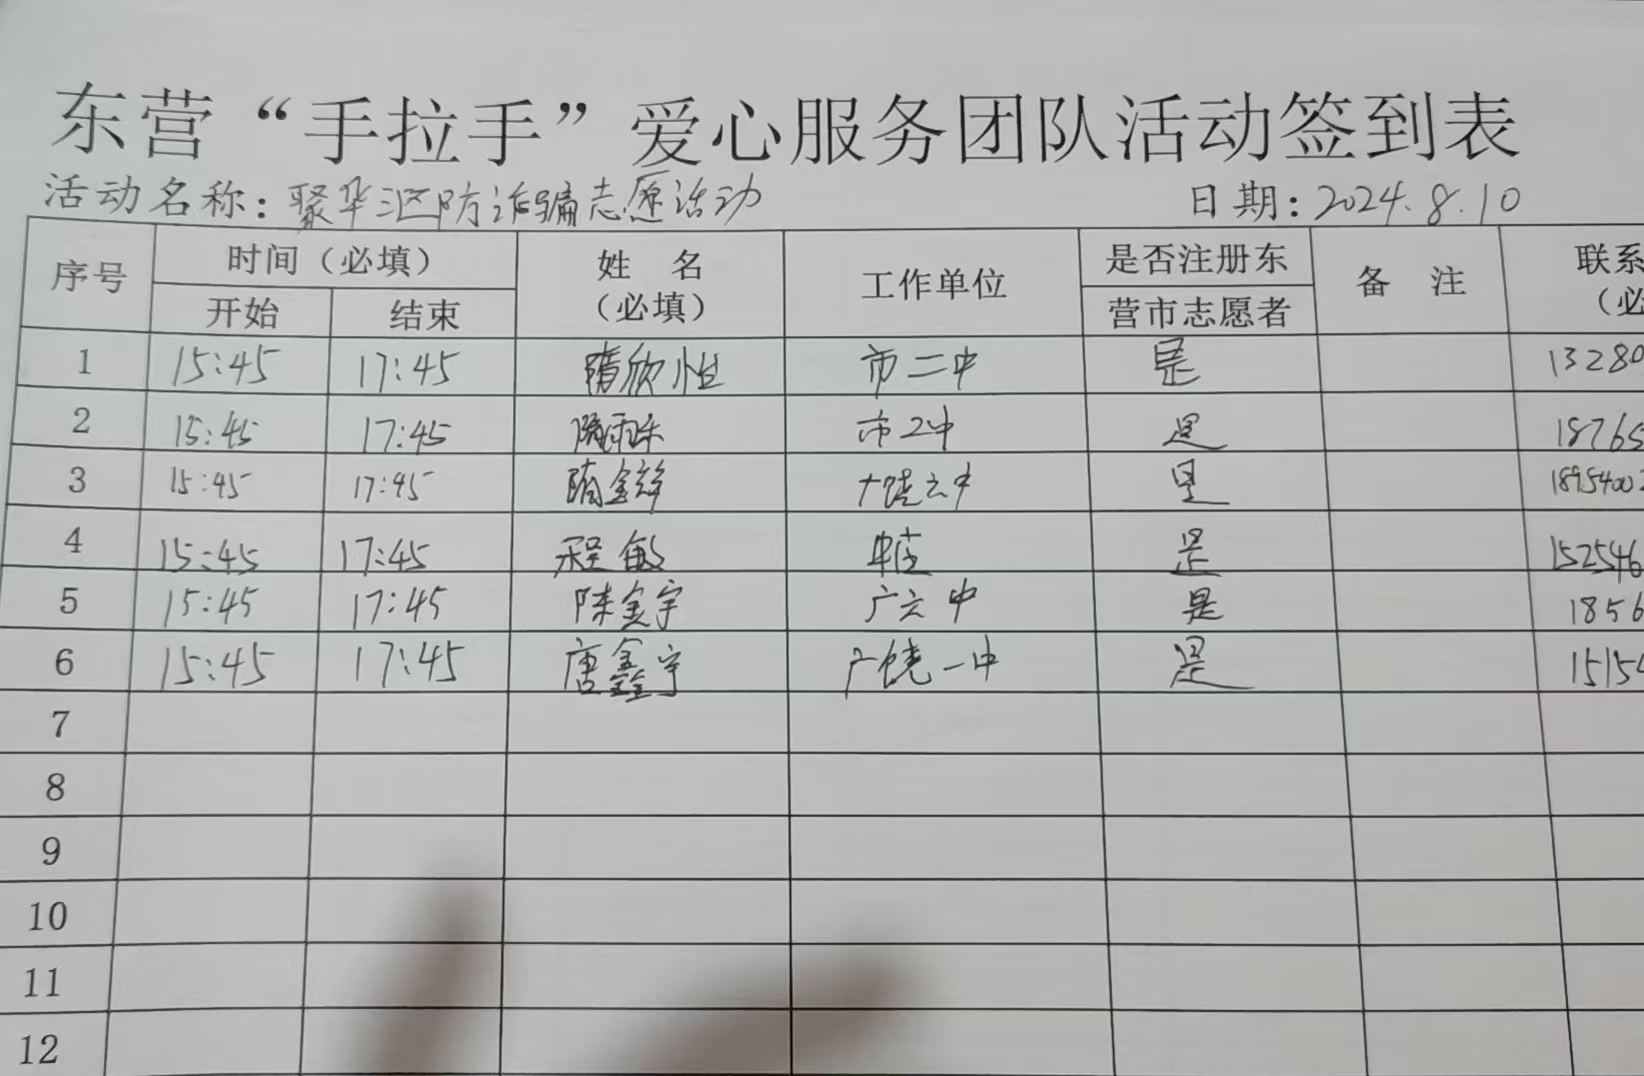 东营“手拉手”爱心服务团队活动签到表
活动名称：聚华汇防诈骗志愿活动 日期：2024.8.10
序号 时间（必填） 姓 名 工作单位 是否注册东 备 注 联系
开始 结束 （必填） 营市志愿者 （必
1 15:45 17:45 隋欣怡 市二中 是 13280
2 15:45 17:45 市二中 是 18765
3 15:45 17:45 隋 中 是 18954002
4 15:45 17:45 程敏 是 152546
5 15:45 17:45 陈金宇 广六中 是 1856
6 15:45 17:45 唐鑫宇 广饶一中 是 15154
7
8
9
10
11
12